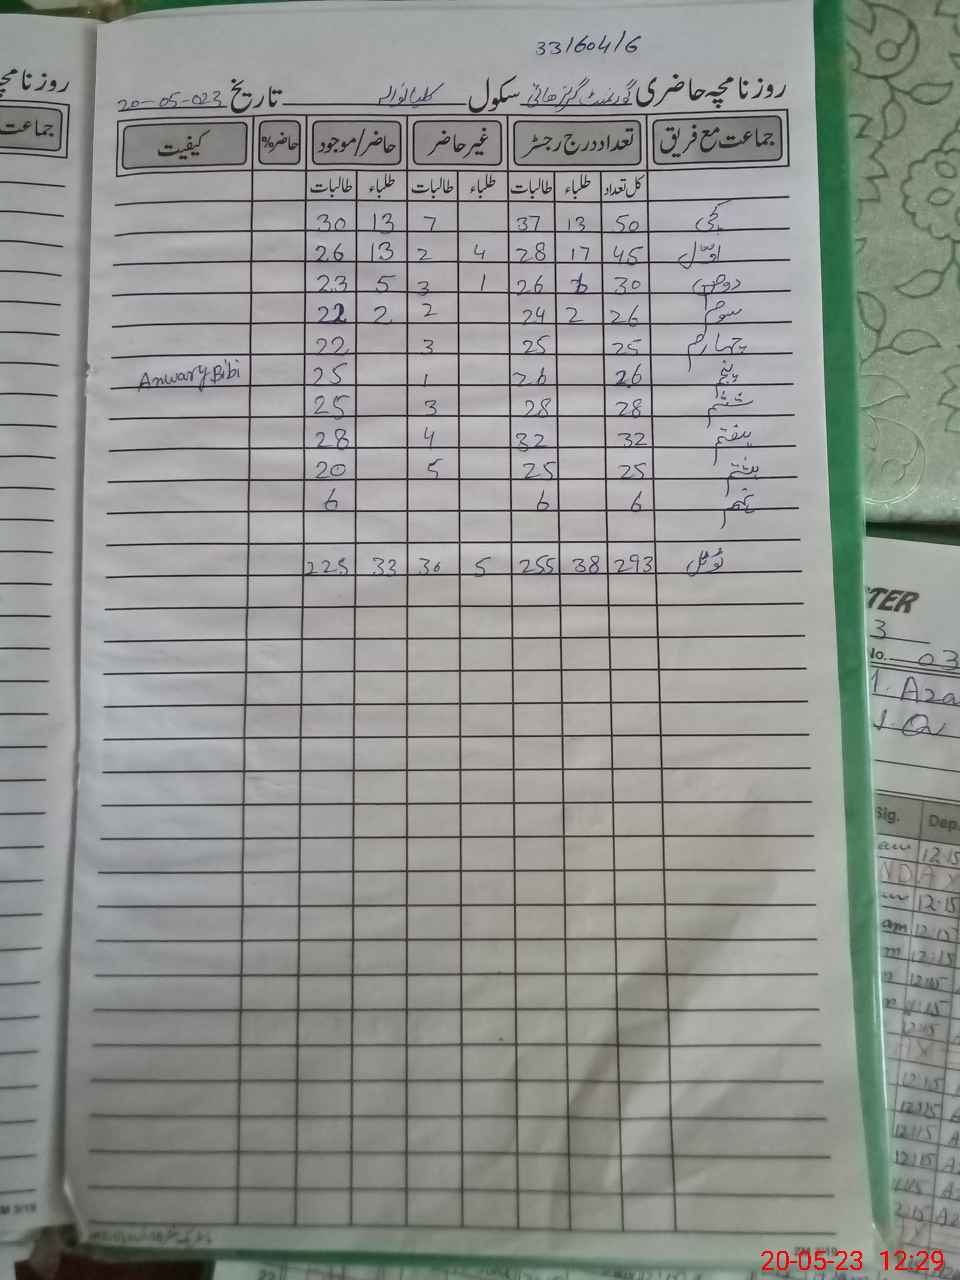 33/604/6
روزنامچہ حاضری گورنمنٹ گرلز ہائی سکول کلیانوالہ تاریخ 20-05-023
جماعت مع فریق تعداد درج رجسٹر غیر حاضر حاضر/موجود حاضر% کیفیت
کل تعداد طلباء طالبات طلباء طالبات طلباء طالبات
کچی 50 13 37 7 13 30
اوّل 45 17 28 4 2 13 26
دوم 30 6 26 1 3 5 23
سوم 26 2 24 2 2 22
چہارم 25 25 3 22
پنجم 26 26 1 25 Anwary Bibi
ششم 28 28 3 25
ہفتم 32 32 4 28
ہشتم 25 25 5 20
نہم 6 6 6
ٹوٹل 293 38 255 5 30 33 225
روزنامچہ
جماعت
TER
3
No. 03
1. Aza
Sig. Dep.
12:15
12:15
am 12:15
12:15
12:15
12:15
12:15
12:15
12:15 A
12:15 A
20-05-23 12:29